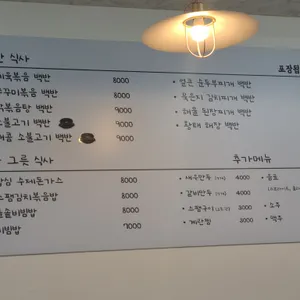 식사
제육볶음 백반 8000
쭈꾸미볶음 백반 8000
백반 9000
소불고기 백반 9000
매콤 소불고기 백반 9000
• 얼큰 순두부찌개 백반
• 묵은지 김치찌개 백반
• 해물 된장찌개 백반
• 황태 해장 백반
그릇 식사
등심 수제돈가스 8000
스팸김치볶음밥 8000
비빔밥 8000
비빔밥 9000
추가메뉴
• 새우만두 4000
• 갈비만두 4000
• 스팸구이 3000
• 계란찜 3000
• 음료
• 소주
• 맥주